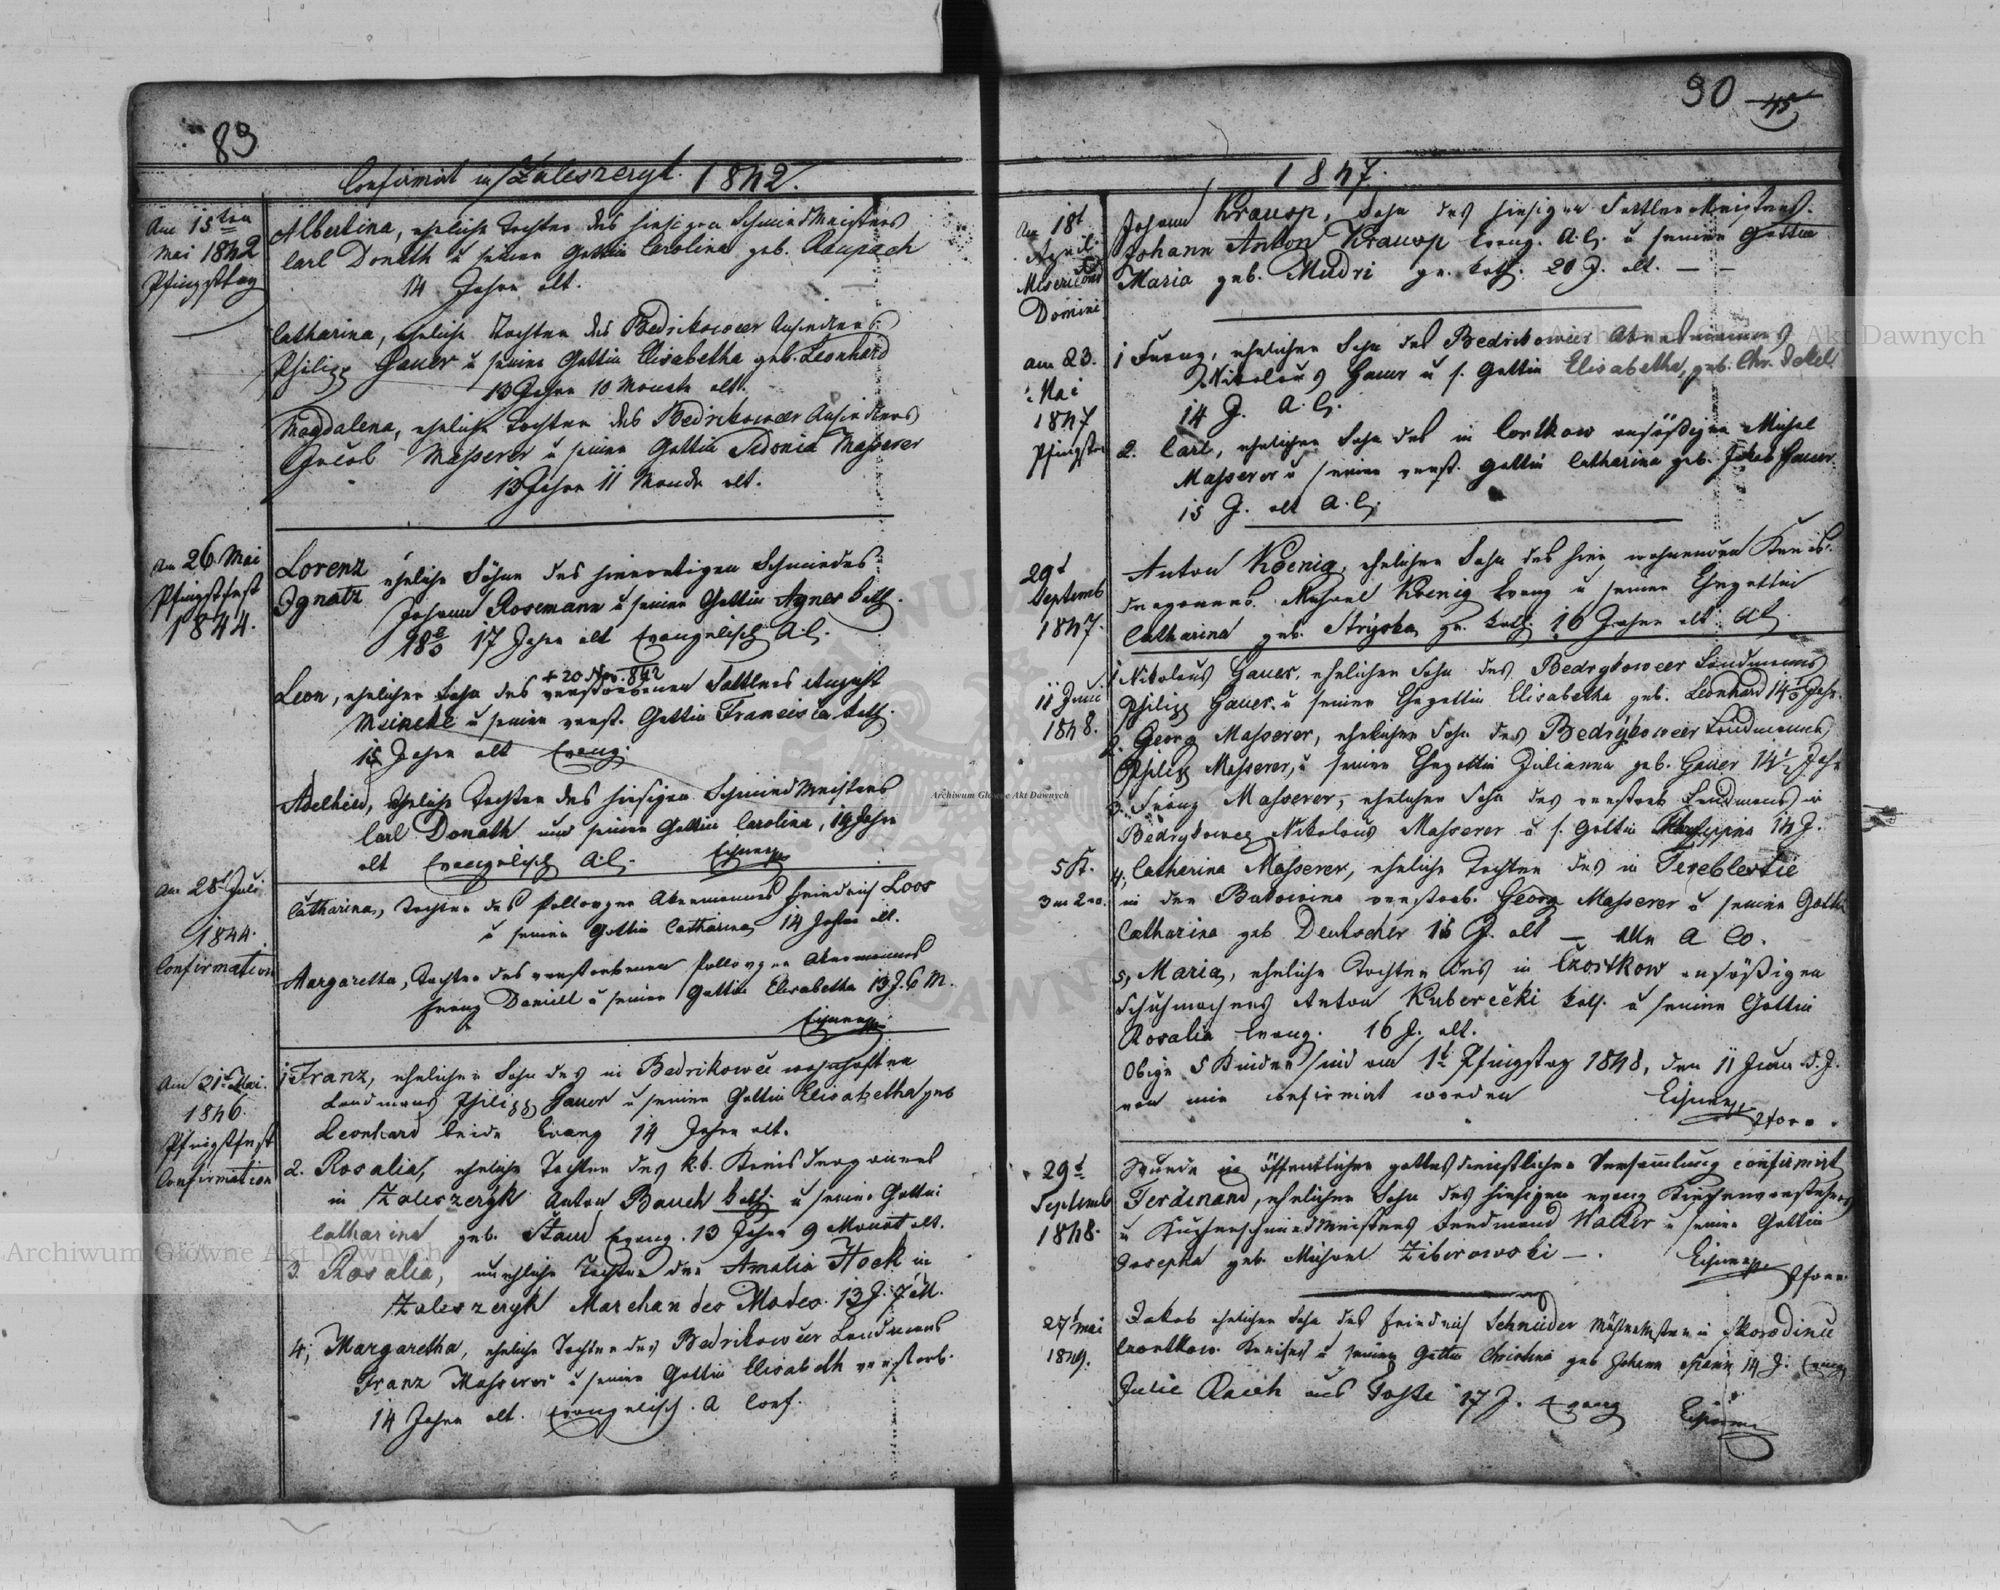 89
Confirmirt in Zaleszczyk. 1842.
Am 15ten
Mai 1842
Pfingsttag
Albertina, eheliche Tochter des hiesigen Schmiedmeisters
Carl Donath u seiner Gattin Carolina geb. Raupach
14 Jahre alt.
Catharina, eheliche Tochter des Bedrikowcer Ansiedlers
Philipp Gauer u seiner Gattin Elisabetha geb. Leonhard
13 Jahre 10 Monate alt.
Magdalena, eheliche Tochter des Bedrikowcer Ansiedlers
Jacob Masserer u seiner Gattin Sidonia Masserer
13 Jahre 11 Monate alt.
Am 26 Mai
Pfingstfest
1844.
Lorenz
Ignatz eheliche Söhne des hierortigen Schmiedes
Johann Rosemann u seiner Gattin Agnes kath.
17 Jahre alt Evangelisch A. C.
+ 20 Nov. 842
Leon, ehelicher Sohn des verstorbenen Sattlers August
Meineke u seiner verst. Gattin Francisca kath.
15 Jahre alt Evang.
Adelheid, Eheliche Tochter des hiesigen Schmiedmeisters
Carl Donath und seiner Gattin Carolina, 14 Jahre
alt Evangelisch A. C.
Am 28t Juli
1844.
Confirmation
Catharina, Tochter des Akermannes Friedrich Loos
u seiner Gattin Catharina, 14 Jahre alt.
Margaretha, Tochter des verstorbenen Akermannes
Franz Daniell u seiner Gattin Elisabetha 13 J. 6 M.
Am 21t Mai
1846.
Pfingstfest
Confirmation
1 Franz, ehelicher Sohn des in Bedrikowce wohnhaften
Landmans Philipp Gauer u seiner Gattin Elisabetha geb
Leonhard beide Evang 14 Jahre alt.
2. Rosalia, eheliche Tochter des k.k. Kreisdragoners
in Zaleszczyk Anton Bauch kath. u seiner Gattin
Catharina geb. Staud Evang. 13 Jahre 9 Monat alt.
3. Rosalia, uneheliche Tochter der Amalia Hock in
Zaleszczyk Marchan des Modes. 13 J. 7 M.
4, Margaretha, eheliche Tochter des Bedrikowcer Landmans
Franz Masserer u seiner Gattin Elisabeth verstorb.
14 Jahre alt. Evangelisch. A Conf.
90 45
1847.
Am 18t
April
Misericord
Domini
Johann Krausp, Sohn des hiesigen Sattler Meisters
Johann Anton Krausp Evang. A. C. u seiner Gattin
Maria geb. Mudri gr. kath. 20 J. alt. — —
am 23.
Mai
1847
Pfingsten
1 Franz, ehelicher Sohn des Bedrikowcer Akermannes
Nikolaus Gauer u s. Gattin Elisabetha, geb. Chr. Jekel
14 J. A. C.
2. Carl, ehelicher Sohn des in Cortkow ansäßigen Michel
Masserer u seiner verst. Gattin Catharina geb. Jakob Gauer
15 J. alt A. C.
29t
Septemb
1847.
Anton Koenig, ehelicher Sohn des hier wohnenden Kreis-
dragoners Michael Koenig Evang u seiner Ehegattin
Catharina geb. Stryska gr. kath. 16 Jahre alt A C.
11 Juni
1848.
1 Nikolaus Gauer, ehelicher Sohn des Bedrykowcer Landmanns
Philipp Gauer u seiner Ehegattin Elisabetha geb. Leonhard 14 Jahr.
2. Georg Masserer, ehelicher Sohn des Bedrykowcer Landmannes
Philipp Masserer, u seiner Ehegattin Julianna geb. Gauer 14 Jahr
3. Franz Masserer, ehelicher Sohn des verstorb Landmans in
Bedrykowce Nikolaus Masserer u s. Gattin 14 J.
5 K.
3 m 2 w.
4, Catharina Masserer, eheliche Tochter des in Tereblestie
in der Bukowina verstorb. Georg Masserer u seiner Gattin
Catharina geb Deutscher 15 J. alt — Alle A Co.
5, Maria, eheliche Tochter des in Czortkow ansäßigen
Schuhmachers Anton Kuberecki kath. u seiner Gattin
Rosalia Evang. 16 J. alt.
Obige 5 Kinder sind am 1t Pfingsttag 1848, den 11 Juni d. J.
von mir confirmirt worden
29t
Septemb
1848.
Wurde in öffentlicher gottesdienstlicher Versammlung confirmirt
Ferdinand, ehelicher Sohn des hiesigen evang Kirchenvorstehers
u Ferdinand Walter u seiner Gattin
Josepha geb. Michael Ziborowski —.
27t Mai
1849.
Jakob ehelicher Sohn des Friedrich Schneider in Skorodince
Czortkow. Kreises u seiner Gattin Christina geb Johann 14 J. Evang
Julie Rauch aus Toste 17 J. Evang
Archiwum Główne Akt Dawnych
Archiwum Główne Akt Dawnych
Archiwum Główne Akt Dawnych